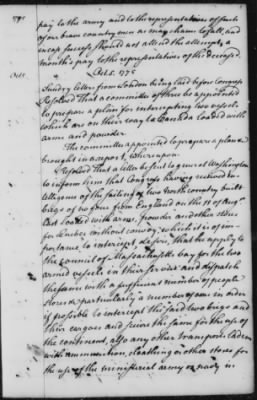 1775 pay to the army and to the representatives of such
of our brave country men as may chance to fall, and
in case forces should not attend the attempt, a
month's pay to the representatives of the deceased.
Oct. 5. 1775
Sundry letters from London being laid before Congress
Resolved that a committee of three be appointed
to prepare a plan for intercepting two vessels
which are on their way to Canada loaded with
arms and powder.
The committee appointed to prepare a plan &
brought in a report, whereupon
Resolved that a letter be sent to general Washington
to inform him that Congress having received in-
telligence of the sailing of two North country built
brigs of no force from England on the 11 of Augt
last loaded with arms, powder and other stores
for Quebec without convoy, which it is of im-
portance to intercept, desire that he apply to
the council of Massachusetts bay for the two
armed vessels in their service and dispatch
the same with a sufficient number of people
stores & particularly a number of oars in order
if possible to intercept the said two brigs and
their cargoes and secure the same for the use of
the continent, also any other transports laden
with ammunition, cloathing or other stores for
the use of the ministerial army or navy in